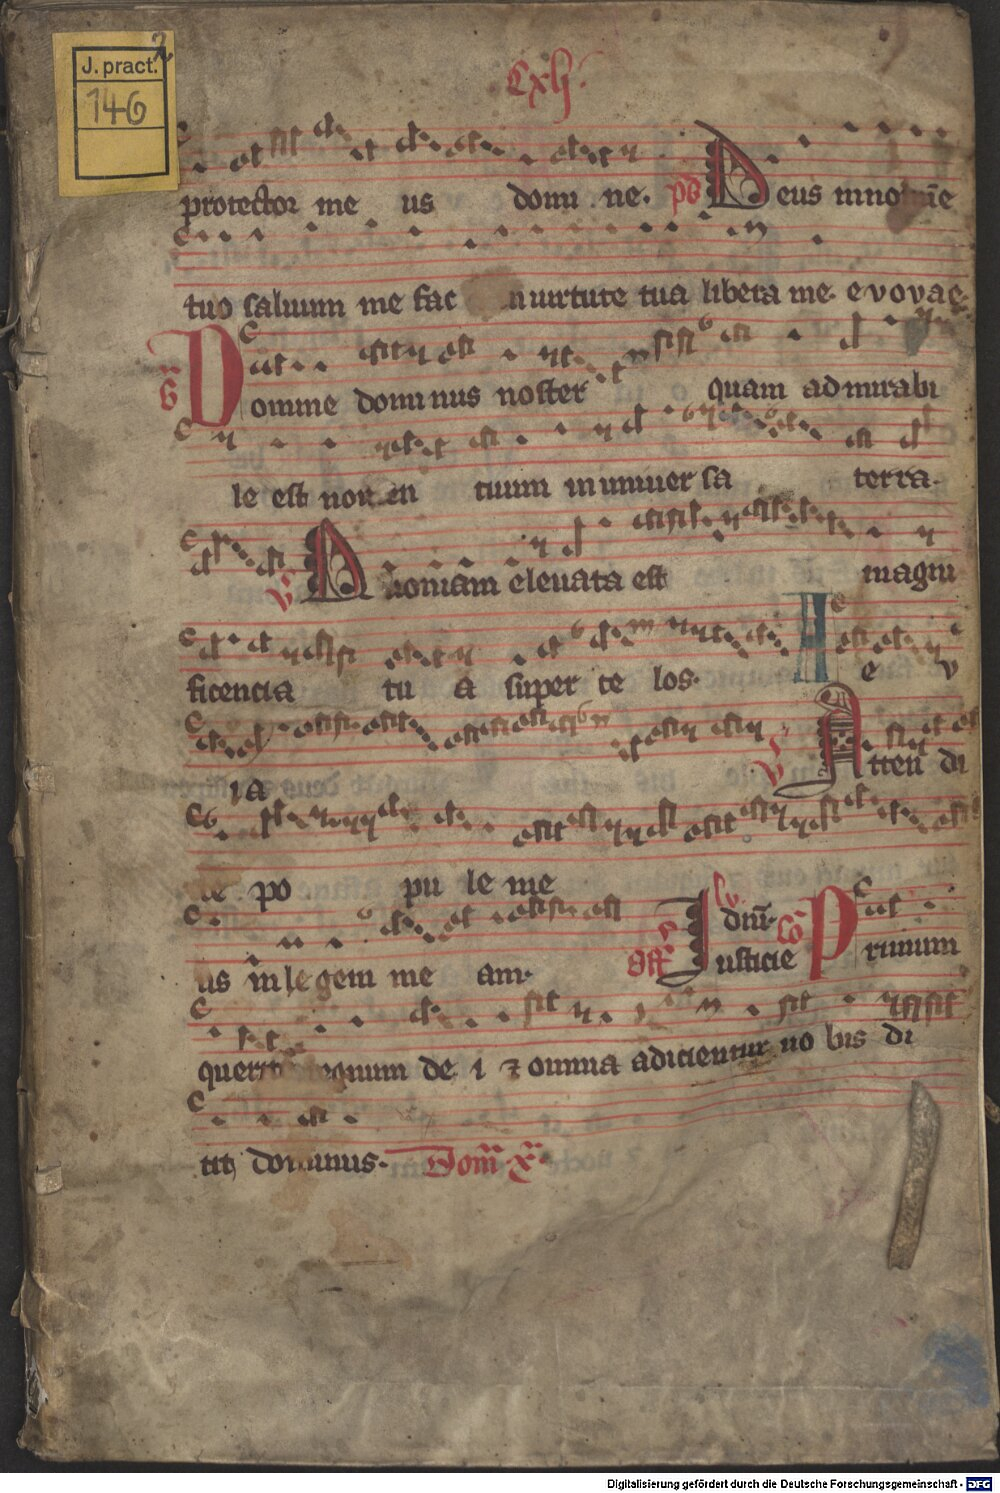 J. pract. 2
146
Cxlj.
protector me us domi ne. ps Deus innoı̄e
tuo saluum me fac uirtute tua libera me. evovae.
Gr̄ Domine domi nus noster quam admirabi
le est nomen tuum inuniuer sa terra.
V Quoniam eleuata est magni
ficencia tu a super ce los. A e v
ia V Atten di
te po pu le me
us in legem me am. V diu. Co P
off Iusticie rimum
querite regnum de i ⁊ omnia adicientur uo bis di
cit dominus. Dom̄ x
Digitalisierung gefördert durch die Deutsche Forschungsgemeinschaft - DFG